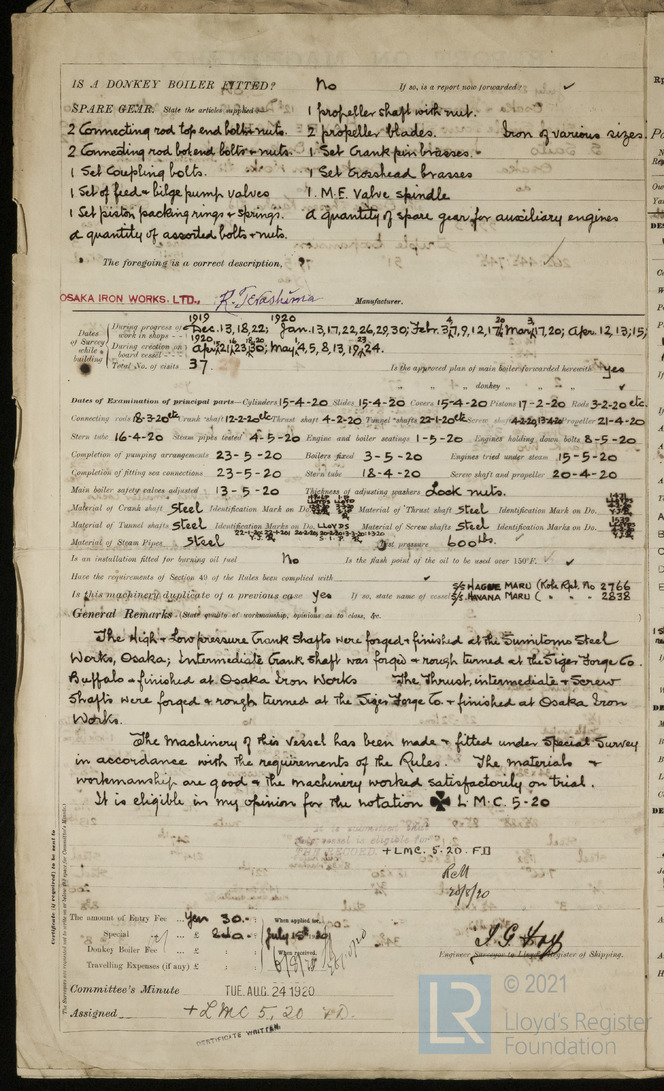 IS A DONKEY BOILER FITTED? No If so, is a report now forwarded? ✓
SPARE GEAR. State the articles supplied:— 1 propeller shaft with nut.
2 Connecting rod top end bolts + nuts. 2 propeller blades. Iron of various sizes.
2 Connecting rod bot end bolts + nuts. 1 Set Crank pin brasses.
1 Set Coupling bolts. 1 Set Crosshead brasses
1 Set of feed + bilge pump valves 1. M.E. Valve spindle
1 Set piston packing rings + springs. a quantity of spare gear for auxiliary engines
a quantity of assorted bolts + nuts.
The foregoing is a correct description,
OSAKA IRON WORKS. LTD., K. Terashima Manufacturer.
1919 1920
Dates of Survey while building
During progress of work in shops -- Dec. 13, 18, 22; Jan. 13, 17, 22, 26, 29, 30; Febr. 3, 4, 7, 9, 12, 17, 20; Mar. 3, 17, 20; Apr. 12, 13, 15;
1920
During erection on board vessel --- Apr. 21, 23, 30; May 4, 5, 8, 13, 19, 23, 24.
Total No. of visits 37. Is the approved plan of main boiler forwarded herewith yes
" " " donkey " " " ✓
Dates of Examination of principal parts—Cylinders 15-4-20 Slides 15-4-20 Covers 15-4-20 Pistons 17-2-20 Rods 3-2-20 etc.
Connecting rods 18-3-20 etc Crank shaft 12-2-20 etc Thrust shaft 4-2-20 Tunnel shafts 22-1-20 etc Screw shaft Propeller 21-4-20
Stern tube 16-4-20 Steam pipes tested 4-5-20 Engine and boiler seatings 1-5-20 Engines holding down bolts 8-5-20
Completion of pumping arrangements 23-5-20 Boilers fixed 3-5-20 Engines tried under steam 15-5-20
Completion of fitting sea connections 23-5-20 Stern tube 18-4-20 Screw shaft and propeller 20-4-20
Main boiler safety valves adjusted 13-5-20 Thickness of adjusting washers Lock nuts.
Material of Crank shaft Steel Identification Mark on Do. Material of Thrust shaft Steel Identification Mark on Do.
Material of Tunnel shafts Steel Identification Marks on Do. LLOYDS Material of Screw shafts Steel Identification Marks on Do.
Material of Steam Pipes Steel Test pressure 600 lbs.
Is an installation fitted for burning oil fuel No Is the flash point of the oil to be used over 150°F. ✓
Have the requirements of Section 49 of the Rules been complied with ✓
Is this machinery duplicate of a previous case yes If so, state name of vessel S/S HAGUE MARU (Kobe Rpt. No 2766
S/S. HAVANA MARU ( " " " 2838
General Remarks. (State quality of workmanship, opinions as to class, &c.
The High + Low pressure Crank shafts were forged + finished at the Sumitomo Steel
Works, Osaka; intermediate Crank shaft was forged + rough turned at the Tiger Forge Co.
Buffalo + finished at Osaka Iron Works The Thrust, intermediate + Screw
shafts were forged + rough turned at the Tiger Forge Co. + finished at Osaka Iron
Works.
The Machinery of this vessel has been made + fitted under Special Survey
in accordance with the requirements of the Rules. The materials +
workmanship are good + the machinery worked satisfactorily on trial.
It is eligible in my opinion for the notation ✠ L.M.C. 5-20
It is submitted that
this vessel is eligible for
THE RECORD. + LMC. 5.20. FD
Certificate (if required) to be sent to
(The Surveyors are requested not to write on or below the space for Committee's Minute.)
The amount of Entry Fee ... Yen 30.- : When applied for,
Special ... £ 240.- : July 15th 20
Donkey Boiler Fee ... £ : : When received,
Travelling Expenses (if any) £ : :
Engineer Surveyor to Lloyd's Register of Shipping.
Committee's Minute TUE. AUG. 24 1920
Assigned + LMC 5, 20 F.D.
CERTIFICATE WRITTEN.
LR © 2021
Lloyd's Register
Foundation